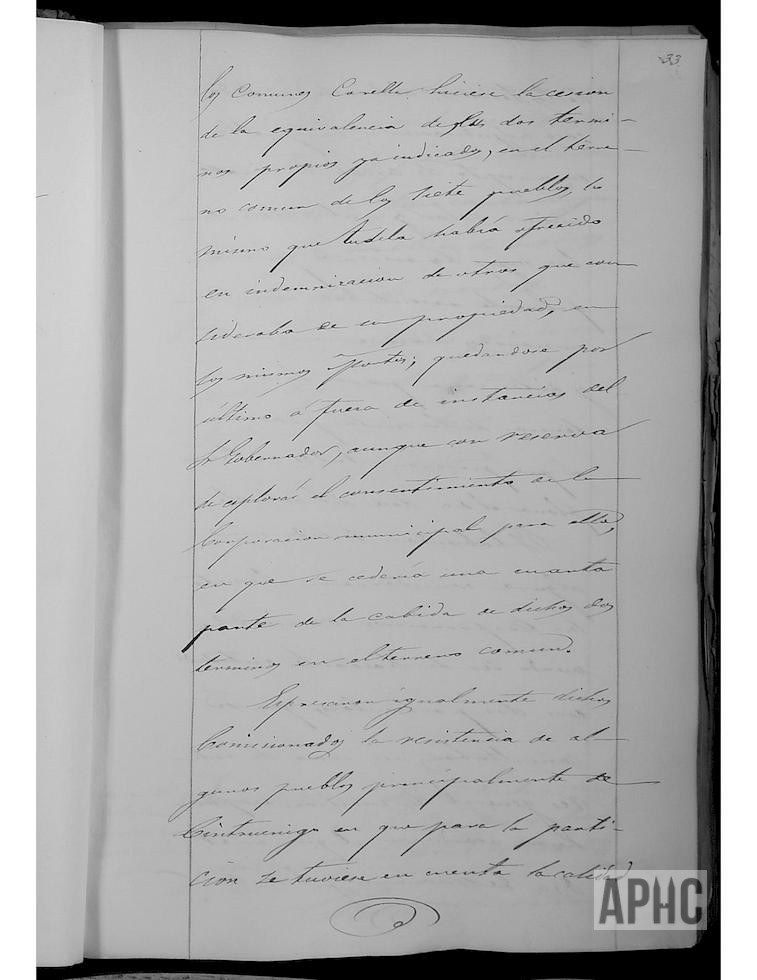 33
los Comunes Corella hiciese la cesion
de la equivalencia de los dos termi-
nos propios ya indicados, en el terre-
no comun de los siete pueblos, lo
mismo que Tudela habia ofrecido
en indemnizacion de otros que con
sideraba de su propiedad, en
los mismos Montes; quedandose por
último á fuera de instancias del
Sr Gobernador, aunque con reserva
de explorar el consentimiento de la
Corporacion municipal para ello,
en que se cederia una cuarta
parte de la cabida de dichos dos
terminos en el terreno comun.
Espresaron igualmente dichos
Comisionados la resistencia de al-
gunos pueblos principalmente de
Cintruenigo en que para la parti-
cion se tuviese en cuenta la calidad
APHC